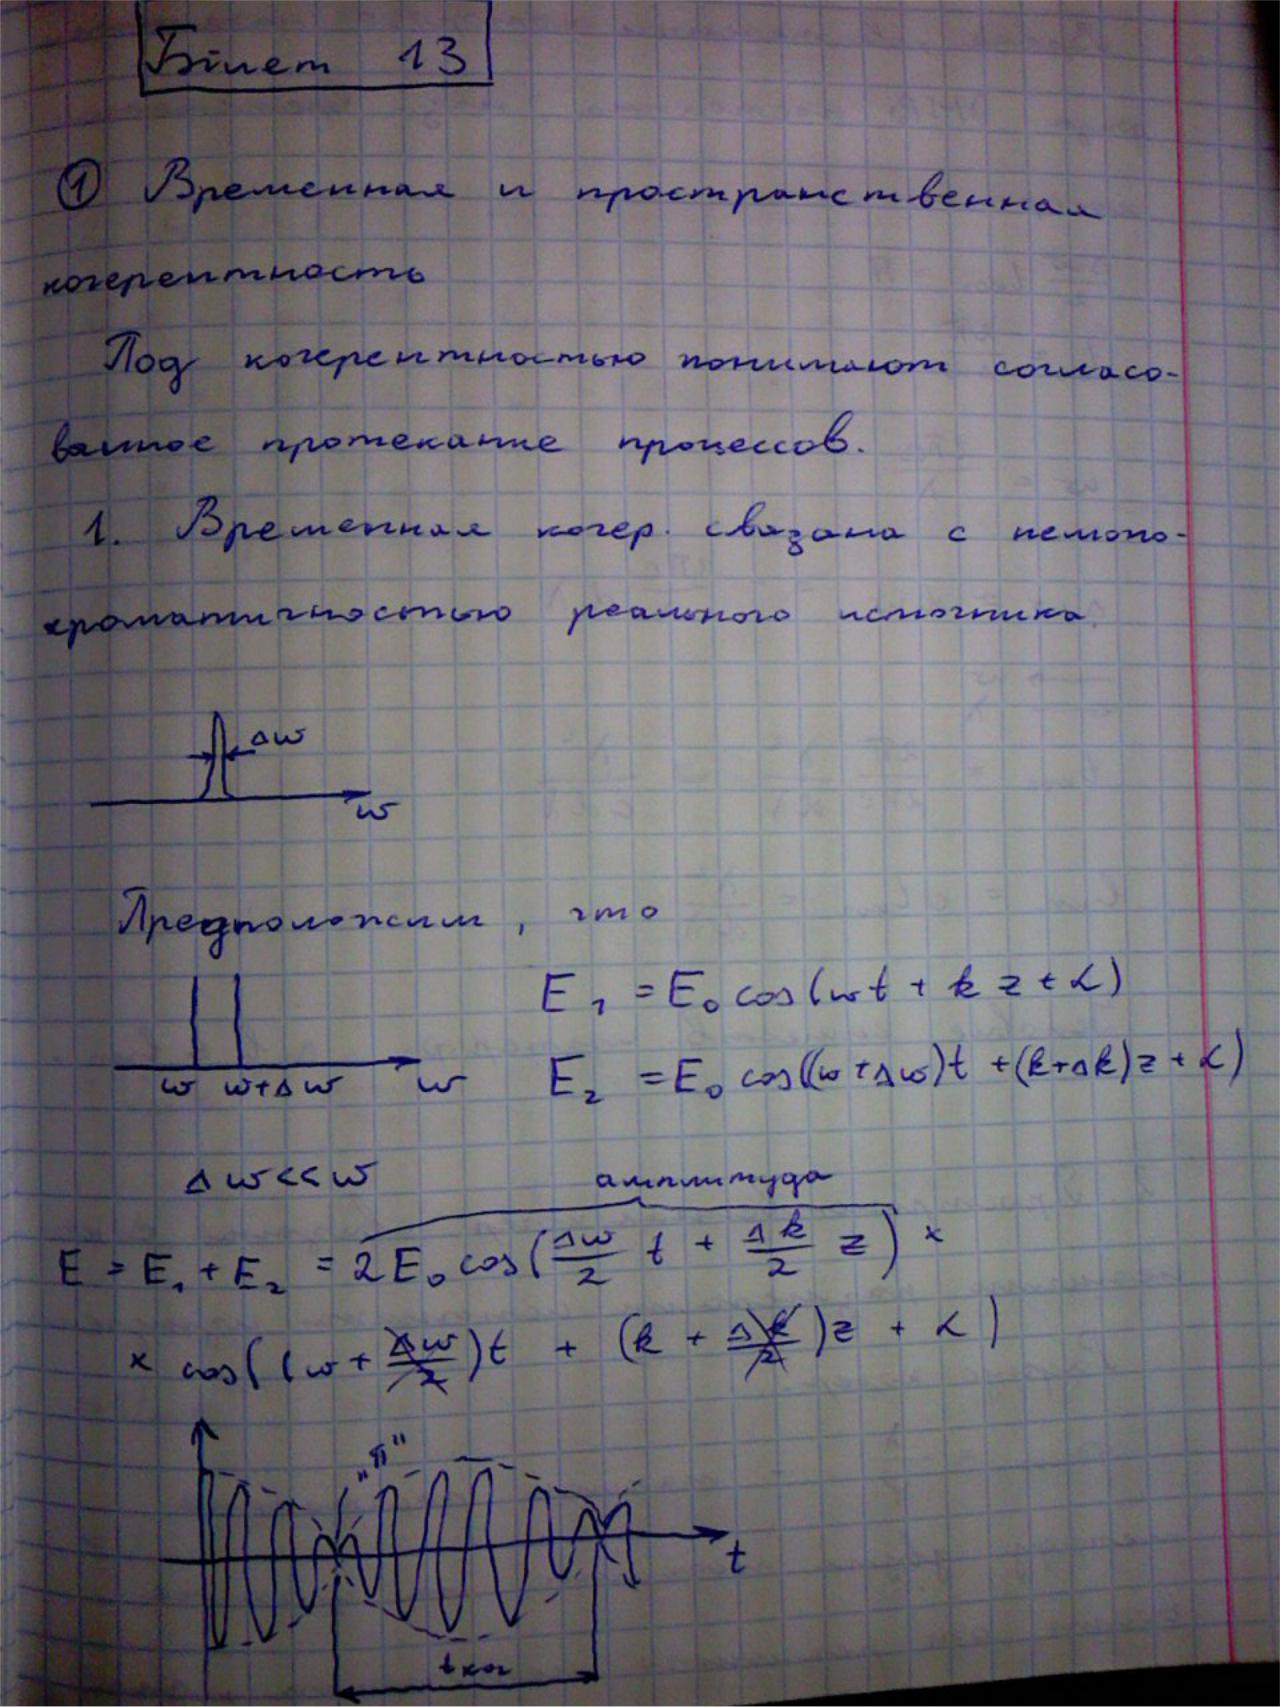 Билет 13
① Временная и пространственная
когерентность
Под когерентностью понимают согласо-
ванное протекание процессов.
1. Временная когер. связана с немоно-
хроматичностью реального источника.
Δω
ω
Предположим, что
E₁ = E₀ cos(ωt + kz + α)
ω ω+Δω ω
E₂ = E₀ cos((ω+Δω)t + (k+Δk)z + α)
Δω<<ω амплитуда
E = E₁ + E₂ = 2E₀ cos(Δω/2 t + Δk/2 z) ×
× cos((ω + Δω/2)t + (k + Δk/2)z + α)
„π“
t
tког